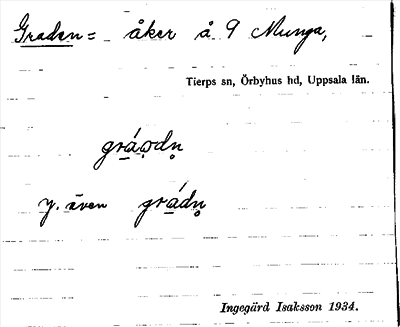 Graden = åker å 9 Munga,
Tierps sn, Örbyhus hd, Uppsala län.
grá̱o̱dn̥
y. även grá̱dn̥
Ingegärd Isaksson 1934.